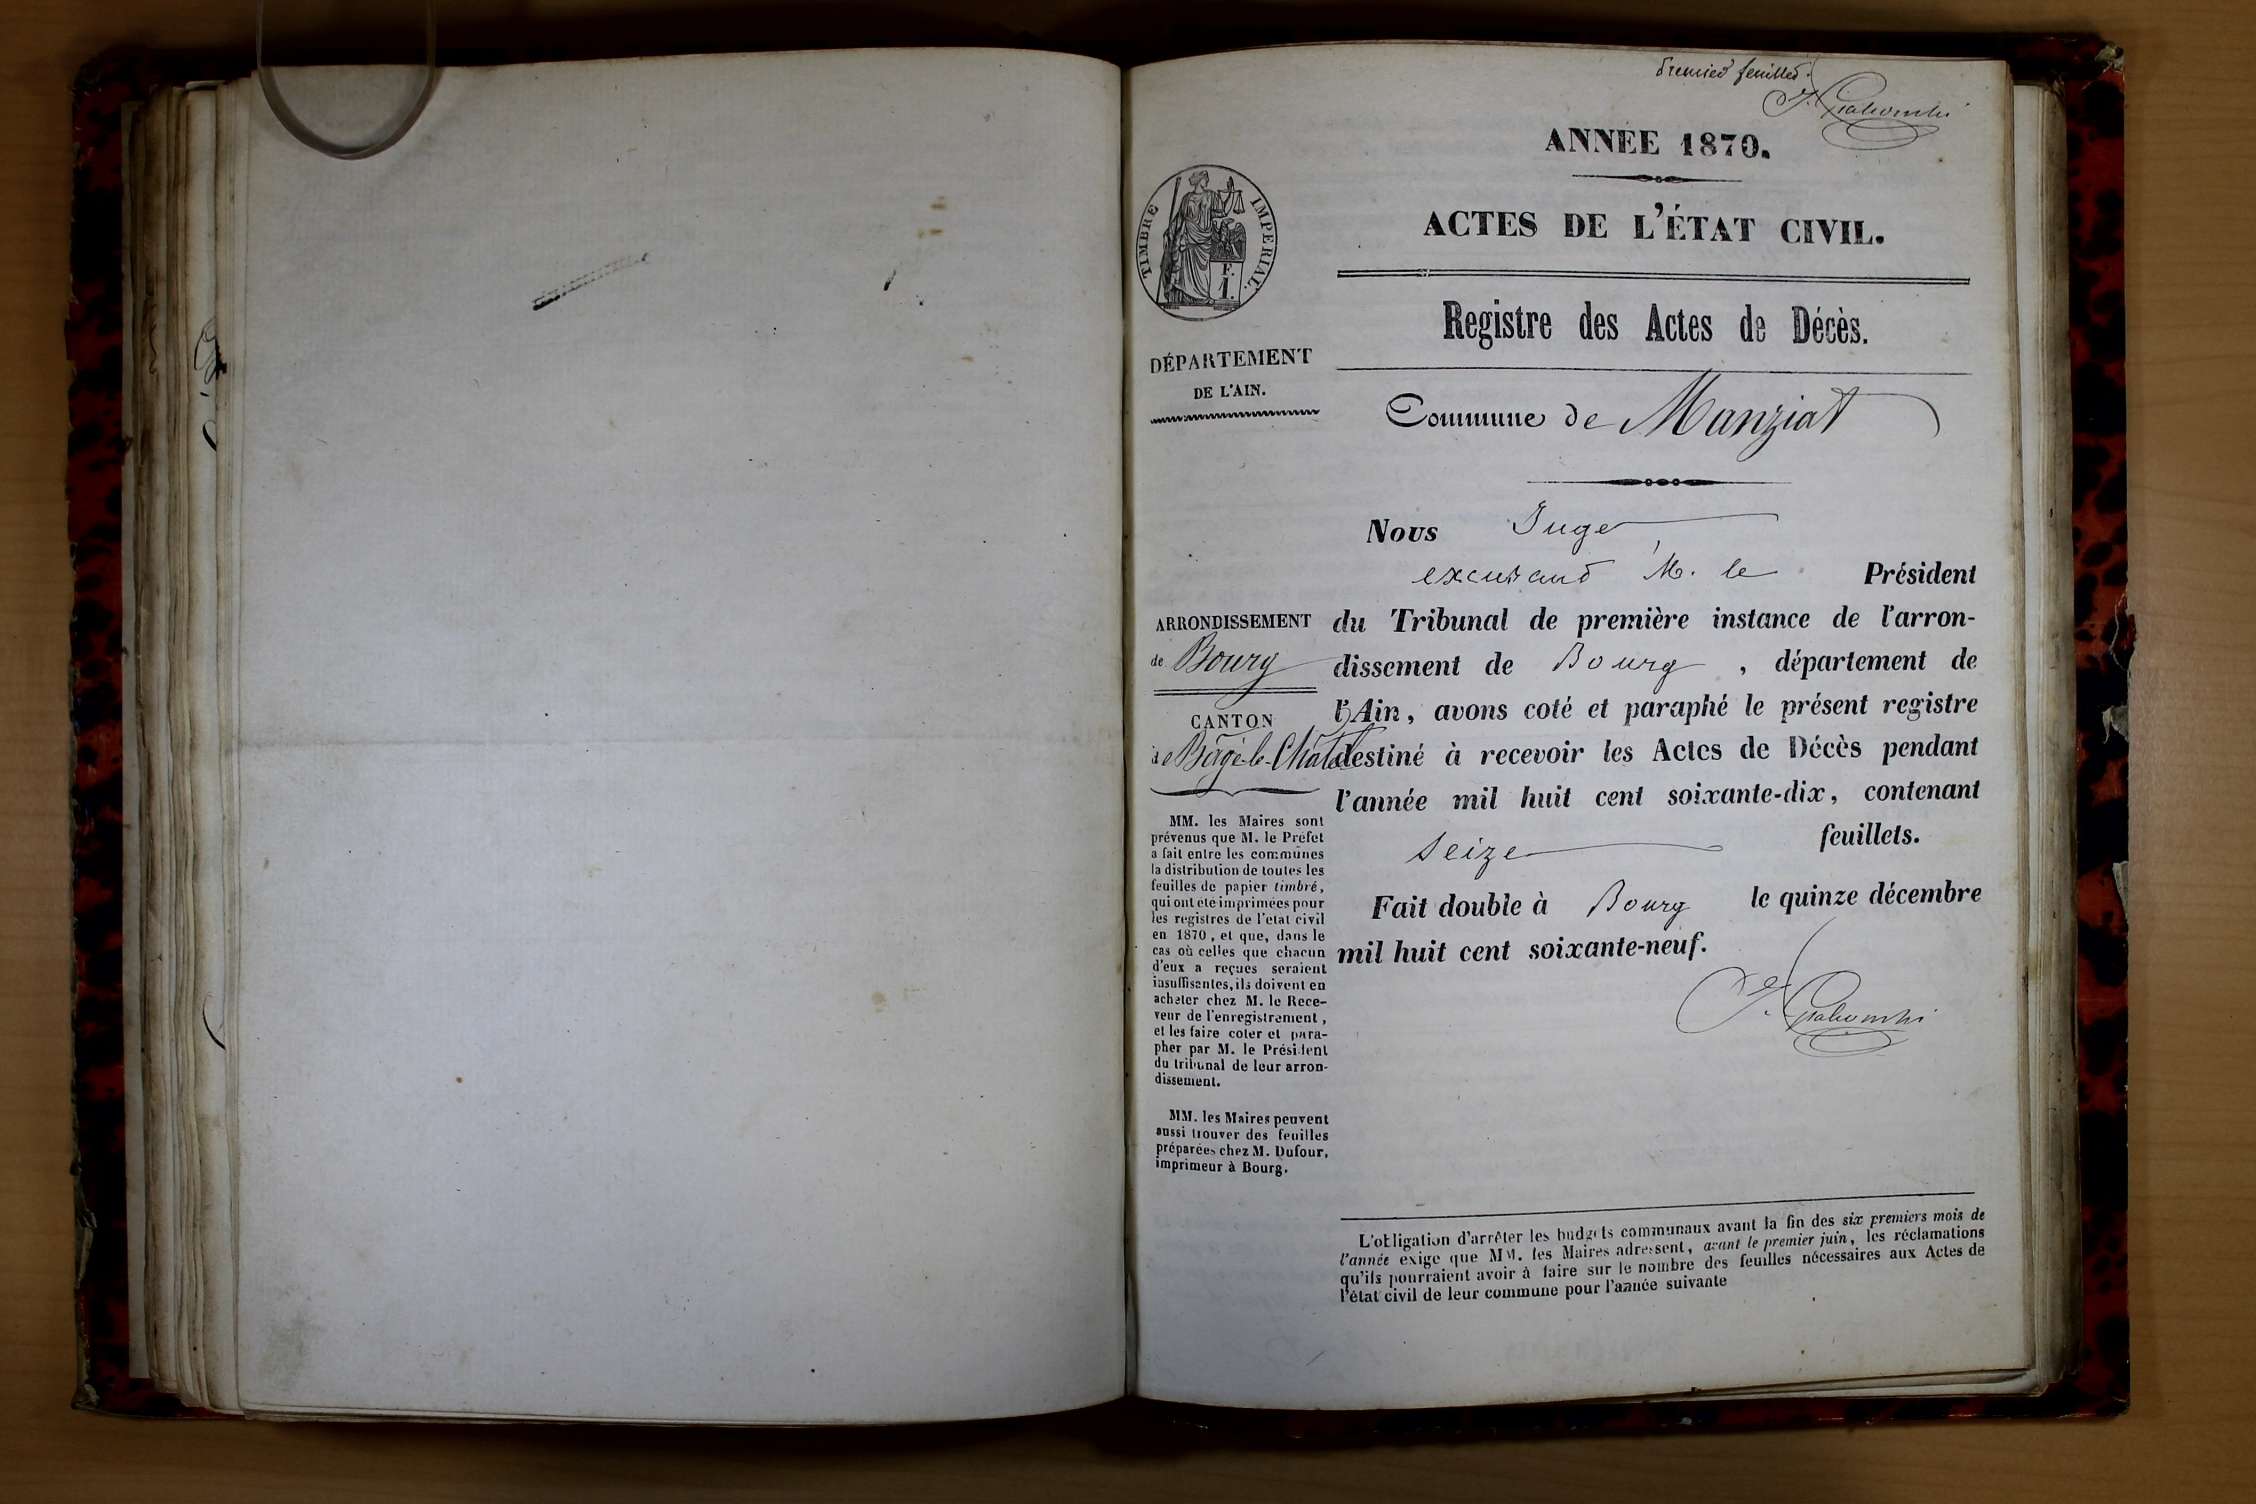 premier feuillet.
ANNÉE 1870.
ACTES DE L'ÉTAT CIVIL.
TIMBRE IMPERIAL.
F.
1.
Registre des Actes de Décès.
DÉPARTEMENT
DE L'AIN.
Commune de Manziat
Nous Juge
excusant M. le Président
ARRONDISSEMENT
de Bourg
CANTON
de Bâgé-le-Châtel
MM. les Maires sont
prévenus que M. le Préfet
a fait entre les communes
la distribution de toutes les
feuilles de papier timbré,
qui ont été imprimées pour
les registres de l'état civil
en 1870, et que, dans le
cas où celles que chacun
d'eux a reçues seraient
insuffisantes, ils doivent en
acheter chez M. le Rece-
veur de l'enregistrement,
et les faire coter et para-
pher par M. le Président
du tribunal de leur arron-
dissement.
MM. les Maires peuvent
aussi trouver des feuilles
préparées chez M. Dufour,
imprimeur à Bourg.
du Tribunal de première instance de l'arron-
dissement de Bourg, département de
l'Ain, avons coté et paraphé le présent registre
destiné à recevoir les Actes de Décès pendant
l'année mil huit cent soixante-dix, contenant
seize feuillets.
Fait double à Bourg le quinze décembre
mil huit cent soixante-neuf.
L'obligation d'arrêter les budgets communaux avant la fin des six premiers mois de
l'année exige que MM. les Maires adressent, avant le premier juin, les réclamations
qu'ils pourraient avoir à faire sur le nombre des feuilles nécessaires aux Actes de
l'état civil de leur commune pour l'année suivante